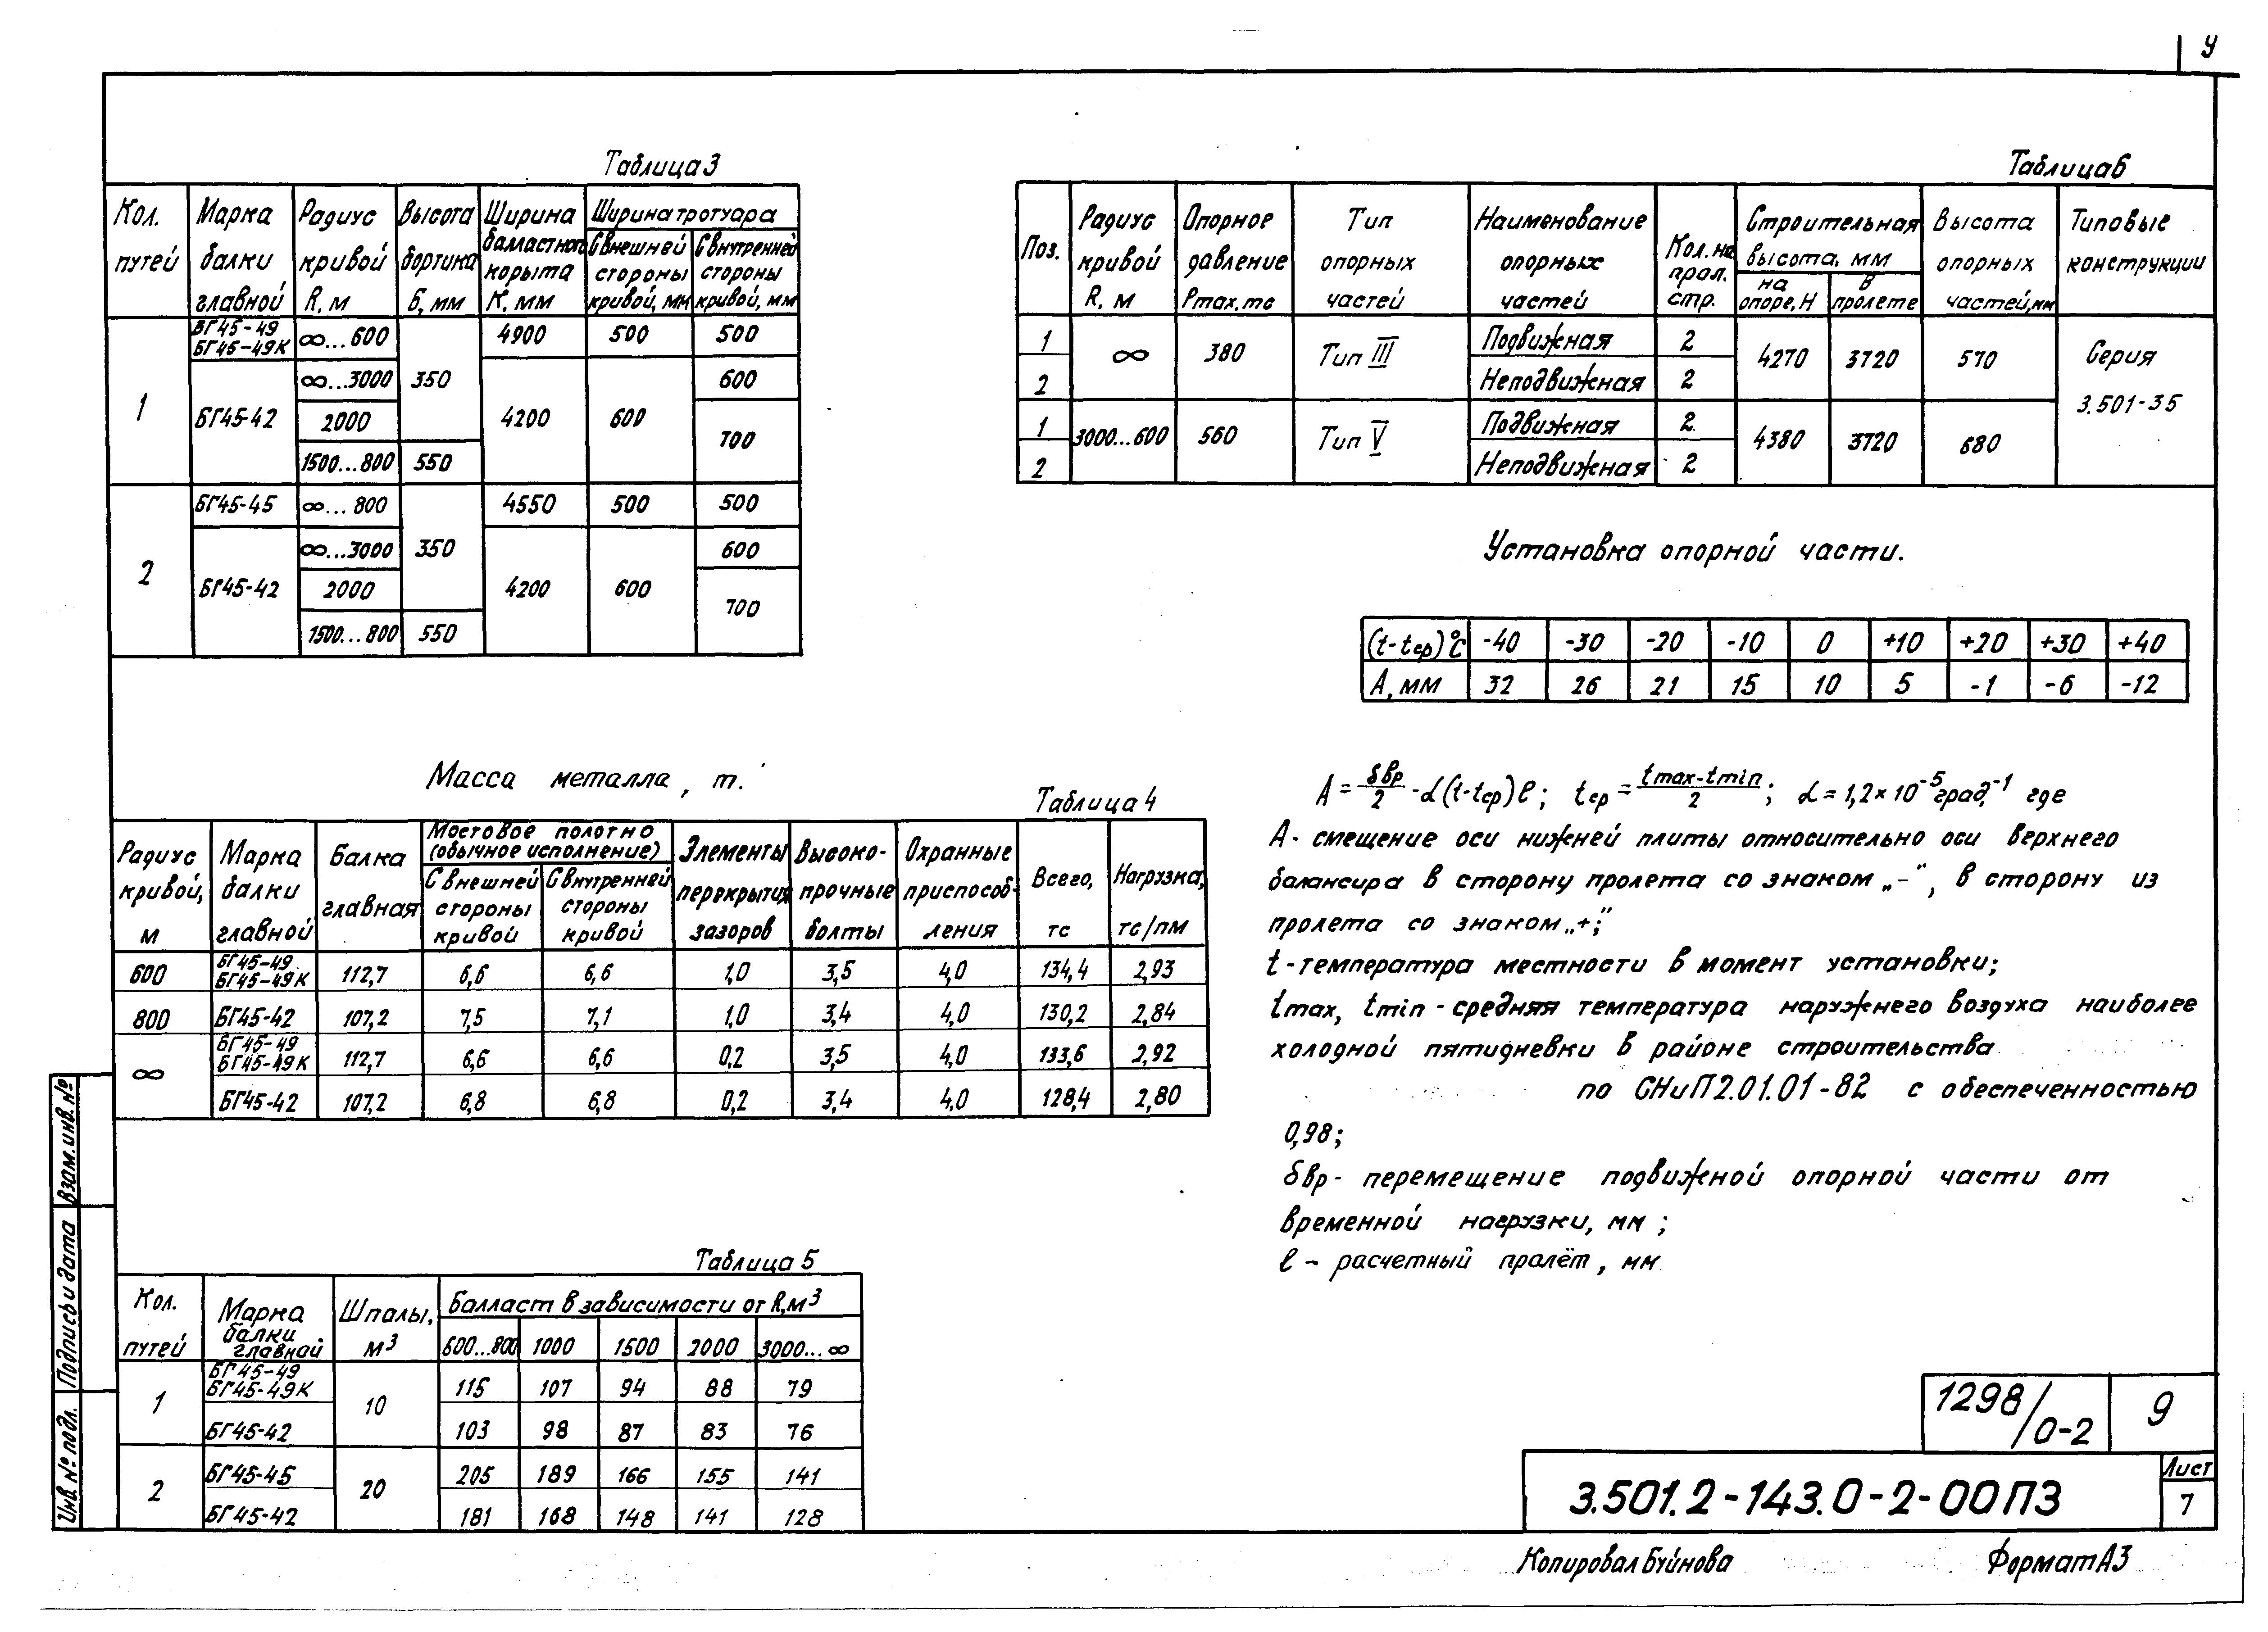 У
Таблица 3
Кол. путей | Марка балки главной | Радиус кривой R, м | Высота бортика Б, мм | Ширина балластного корыта К, мм | Ширина тротуара
С внешней стороны кривой, мм | С внутренней стороны кривой, мм
1 | БГ45-49 БГ45-49К | ∞...600 | 350 | 4900 | 500 | 500
БГ45-42 | ∞...3000 | 4200 | 600 | 600
2000 | 700
1500...800 | 550
2 | БГ45-45 | ∞...800 | 350 | 4550 | 500 | 500
БГ45-42 | ∞...3000 | 4200 | 600 | 600
2000 | 700
1500...800 | 550
Масса металла, т.
Таблица 4
Радиус кривой, м | Марка балки главной | Балка главная | Мостовое полотно (обычное исполнение) | Элементы перекрытия зазоров | Высокопрочные болты | Охранные приспособления | Всего, тс | Нагрузка, тс/пм
С внешней стороны кривой | С внутренней стороны кривой
600 | БГ45-49 БГ45-49К | 112,7 | 6,6 | 6,6 | 1,0 | 3,5 | 4,0 | 134,4 | 2,93
800 | БГ45-42 | 107,2 | 7,5 | 7,1 | 1,0 | 3,4 | 4,0 | 130,2 | 2,84
∞ | БГ45-49 БГ45-49К | 112,7 | 6,6 | 6,6 | 0,2 | 3,5 | 4,0 | 133,6 | 2,92
БГ45-42 | 107,2 | 6,8 | 6,8 | 0,2 | 3,4 | 4,0 | 128,4 | 2,80
Таблица 5
Кол. путей | Марка балки главной | Шпалы, м³ | Балласт в зависимости от R, м³
600...800 | 1000 | 1500 | 2000 | 3000...∞
1 | БГ45-49 БГ45-49К | 10 | 115 | 107 | 94 | 88 | 79
БГ45-42 | 103 | 98 | 87 | 83 | 76
2 | БГ45-45 | 20 | 205 | 189 | 166 | 155 | 141
БГ45-42 | 181 | 168 | 148 | 141 | 128
Таблица 6
Поз. | Радиус кривой R, м | Опорное давление Pmax, тс | Тип опорных частей | Наименование опорных частей | Кол. на прол. стр. | Строительная высота, мм | Высота опорных частей, мм | Типовые конструкции
на опоре, Н | в пролете
1 | ∞ | 380 | Тип III | Подвижная | 2 | 4270 | 3720 | 570 | Серия 3.501-35
2 | Неподвижная | 2
1 | 3000...600 | 560 | Тип V | Подвижная | 2 | 4380 | 3720 | 680
2 | Неподвижная | 2
Установка опорной части.
(t-tср)°С | -40 | -30 | -20 | -10 | 0 | +10 | +20 | +30 | +40
А, мм | 32 | 26 | 21 | 15 | 10 | 5 | -1 | -6 | -12
A = δвр/2 - α(t-tср)ℓ; tср = tmax-tmin/2; α = 1,2×10⁻⁵град.⁻¹ где
А- смещение оси нижней плиты относительно оси верхнего
балансира в сторону пролета со знаком „-", в сторону из
пролета со знаком „+;"
t-температура местности в момент установки;
tmax, tmin - средняя температура наружнего воздуха наиболее
холодной пятидневки в районе строительства
по СНиП 2.01.01-82 с обеспеченностью
0,98;
δвр- перемещение подвижной опорной части от
временной нагрузки, мм;
ℓ - расчетный пролёт, мм
1298/0-2 | 9
3.501.2-143.0-2-00ПЗ
Лист
7
Копировал Буйнова
Формат А3
Инв. № подл. | Подпись и дата | Взам. инв. №